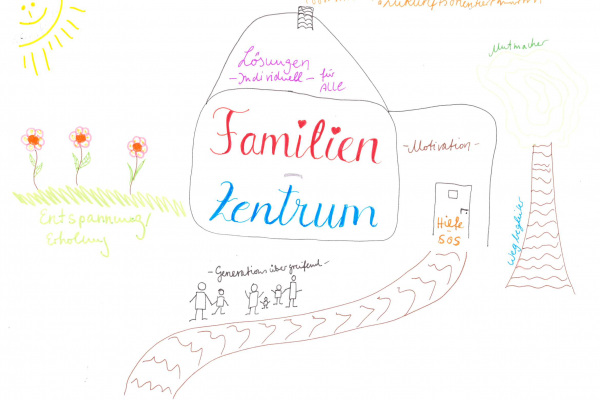 Mutmacher
Lösungen
-Individuell- für
ALLE
Familien
-Motivation-
Zentrum
Hilfe
SOS
Wegbegleiter
Entspannung/
Erholung
-Generationsübergreifend-